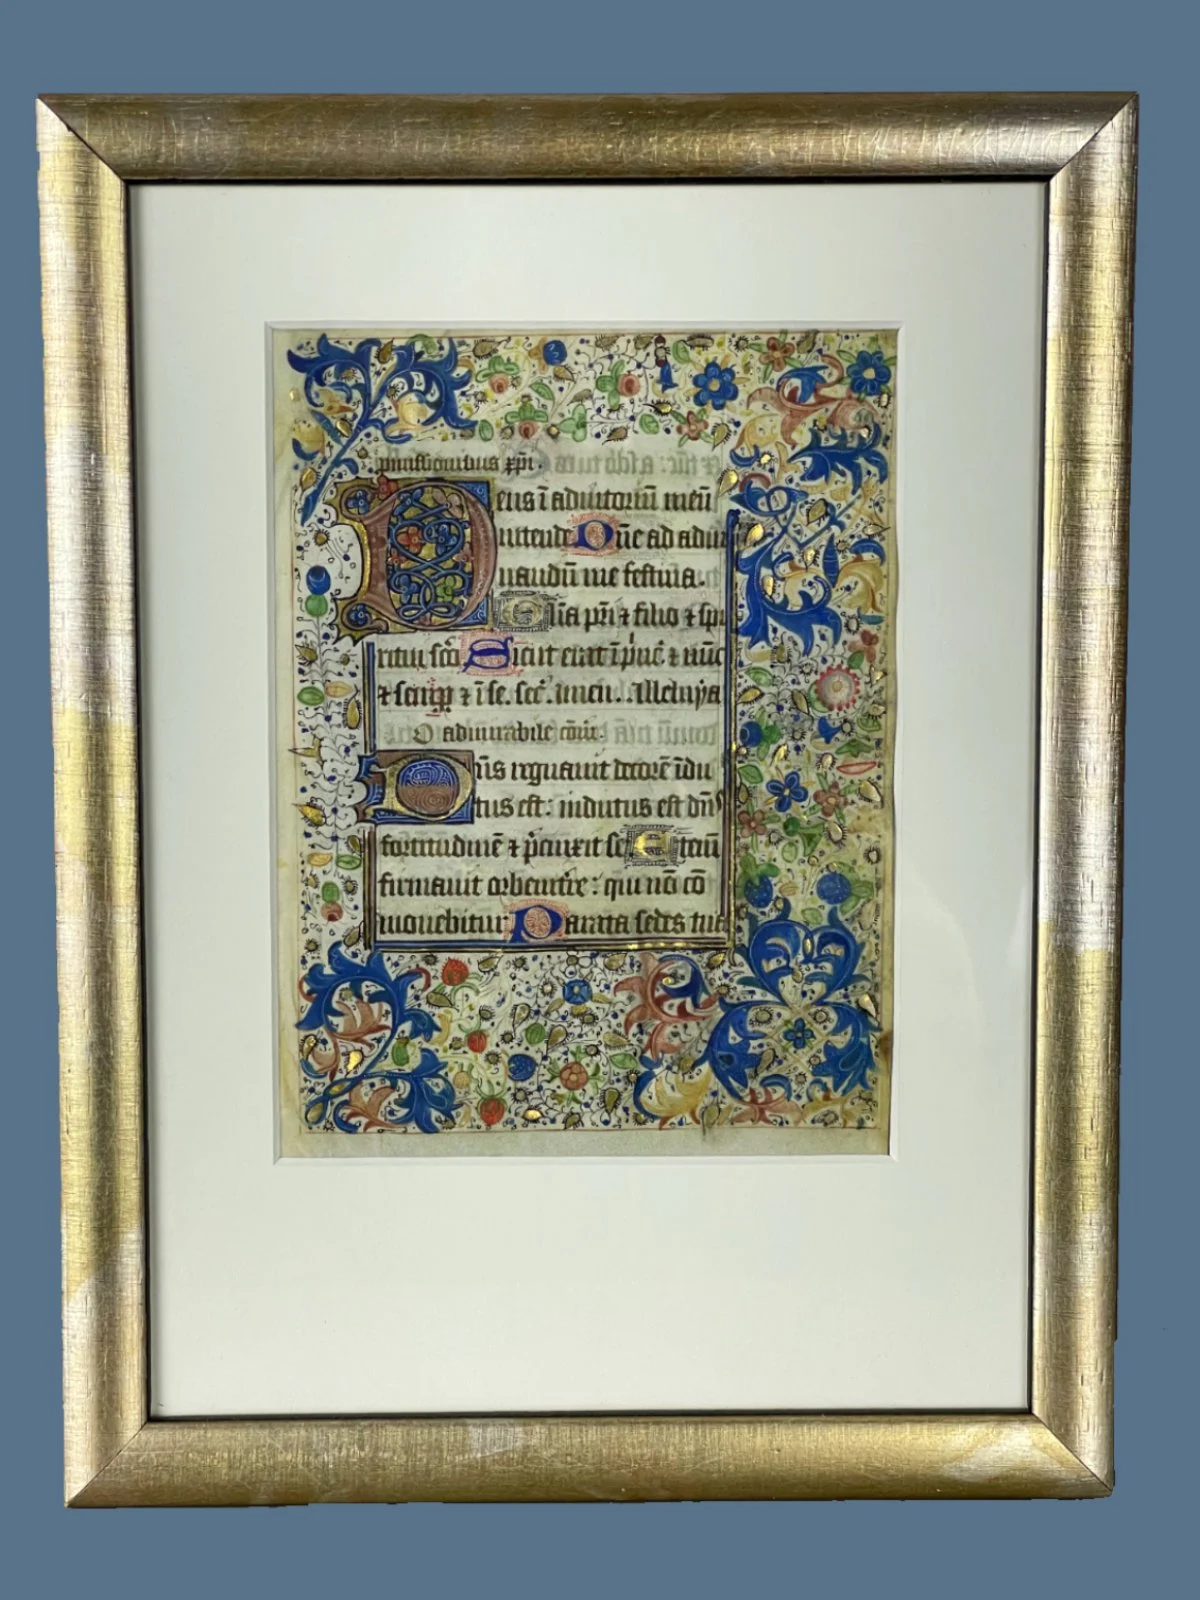 pmissionibus xpi.
Deus ī adiutoriū meū
intende Dn̄e ad adiu
uandū me festina.
Gl̄ia pr̄i ⁊ filio ⁊ spi
ritui sc̄o Sicut erat ī pn̄c̄ ⁊ nūc
⁊ semp̱ ⁊ ī se. sec̄. Amen. Alleluya
O admirabile com̄.
Dn̄s regnauit decorē īdu
tus est: indutus est dn̄s
fortitudinē ⁊ p̄cinxit se Eteni
firmauit orbem tr̄e: qui nō cō
mouebitur Parata sedes tua